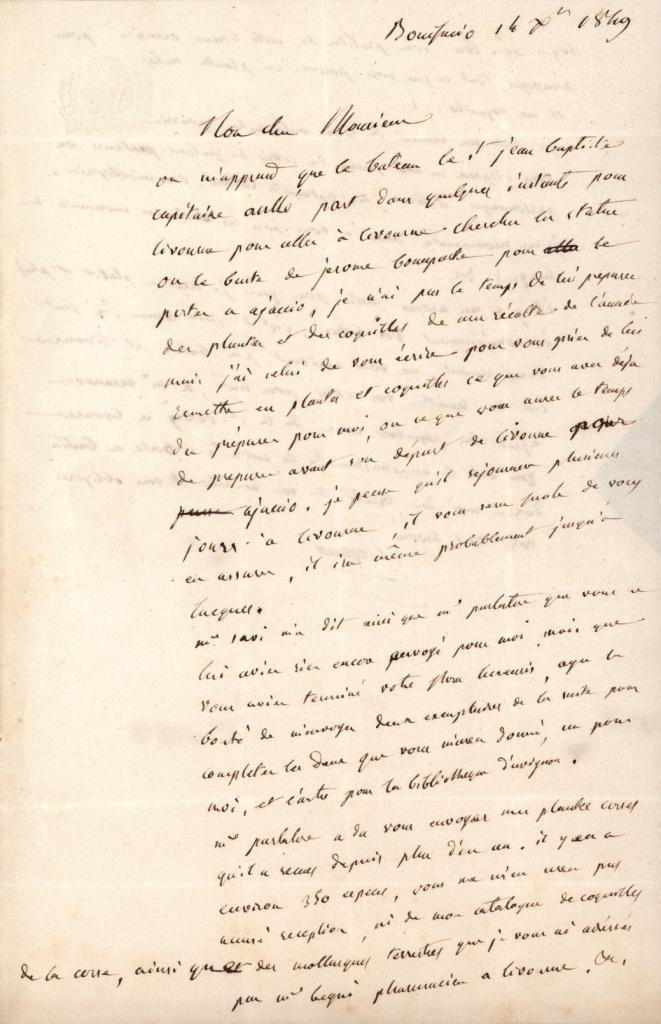 Bonifacio 14 Xbre 1849
Mon cher Monsieur
on m'apprend que le bateau le St jean baptiste
capitaine part dans quelques instants pour
livourne pour aller à livourne chercher la statue
ou le buste de jerome bonaparte pour alla le
porter a ajaccio, je n'ai pas le temps de lui preparer
des plantes et des coquilles de ma récolte de l'année
mais j'ai celui de vous écrire pour vous prier de lui
remettre en plantes et coquilles ce que vous avez déja
du préparer pour moi, ou ce que vous aurez le temps
de preparer avant son départ de livourne pour
pour ajaccio. je pense qu'il sejournera plusieurs
jours à livourne, il vous sera facile de vous
en assurer, il ira même probablement jusqu'à
lucques.
mr savi m'a dit ainsi que mr parlatore que vous ne
lui aviez rien encore envoyé pour moi mais que
vous aviez terminé votre flora lucensis, ayez la
bonté de m'envoyer deux exemplaires de la suite pour
completer les deux que vous m'avez donné, un pour
moi, et l'autre pour la bibliotheque d'avignon.
mr parlatore a du vous envoyer mes plantes corses
qu'il a recues depuis plus d'un an. il y en a
environ 350 especes, vous ne m'en avez pas
accusé reception, ni de mon catalogue de coquilles
de la corse, ainsi que des mollusques terrestres que je vous ai adressés
par mr pharmacien a livourne. &c.